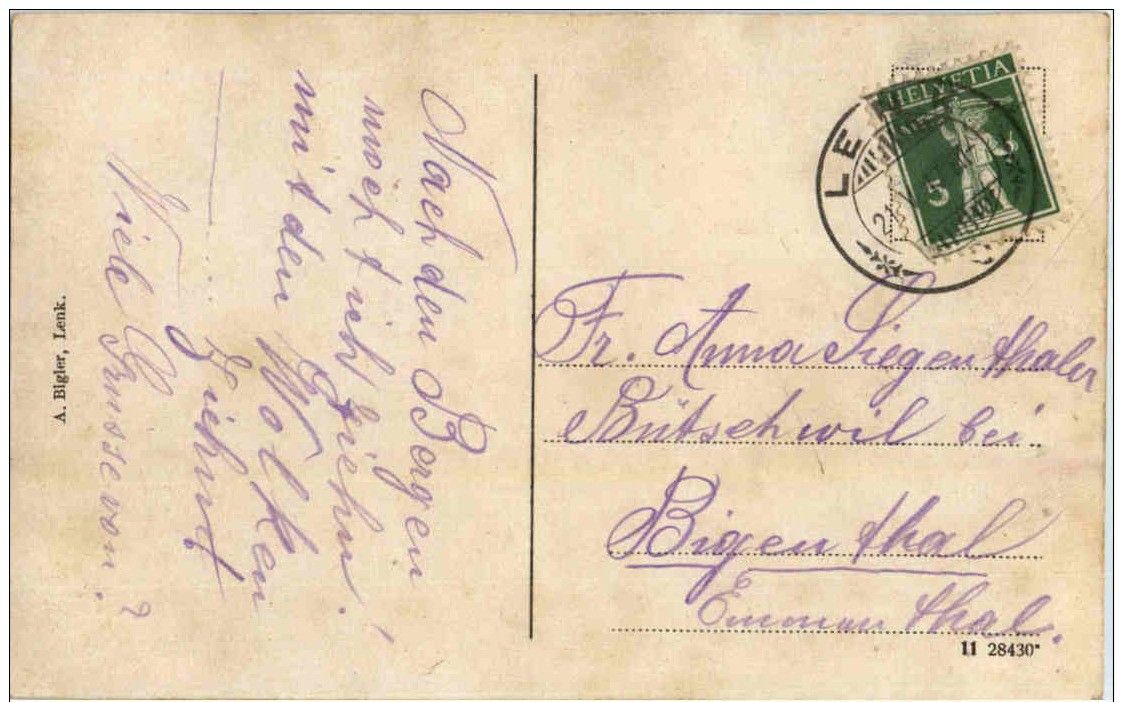 Nach den Bergen
möcht ich ziehn!
mit den Wolken
ziehn
Viele Grüsse von ?
A. Bigler, Lenk.
HELVETIA
5
LE
Fr. Anna Siegenthaler
Bütschwil bei
Bigenthal
Emmenthal.
11 28430*